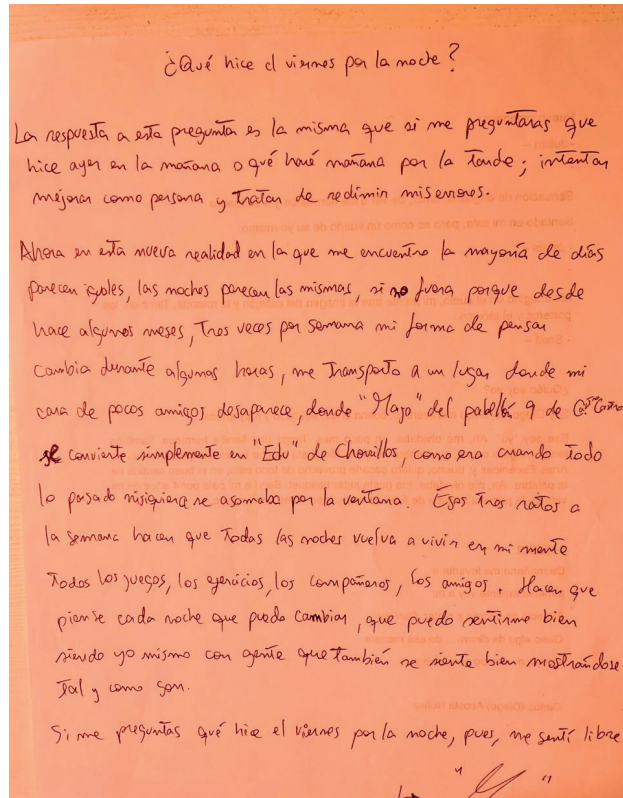 ¿Qué hice el viernes por la noche?
La respuesta a esta pregunta es la misma que si me preguntaras que
hice ayer en la mañana o qué haré mañana por la tarde; intentar
mejorar como persona y tratar de redimir mis errores.
Ahora en esta nueva realidad en la que me encuentro la mayoría de días
parecen iguales, las noches parecen las mismas, si no fuera porque desde
hace algunos meses, tres veces por semana mi forma de pensar
cambia durante algunas horas, me transporto a un lugar donde mi
cara de pocos amigos desaparece, donde "Majo" del pabellón 9 de Castro
se convierte simplemente en "Edu" de Chorrillos, como era cuando todo
lo pasado nisiquiera se asomaba por la ventana. Esos tres ratos a
la semana hacen que todas las noches vuelva a vivir en mi mente
todos los juegos, los ejercicios, los compañeros, los amigos. Hacen que
piense cada noche que puedo cambiar, que puedo sentirme bien
siendo yo mismo con gente que también se siente bien mostrándose
tal y como son.
Si me preguntas qué hice el viernes por la noche, pues, me sentí libre